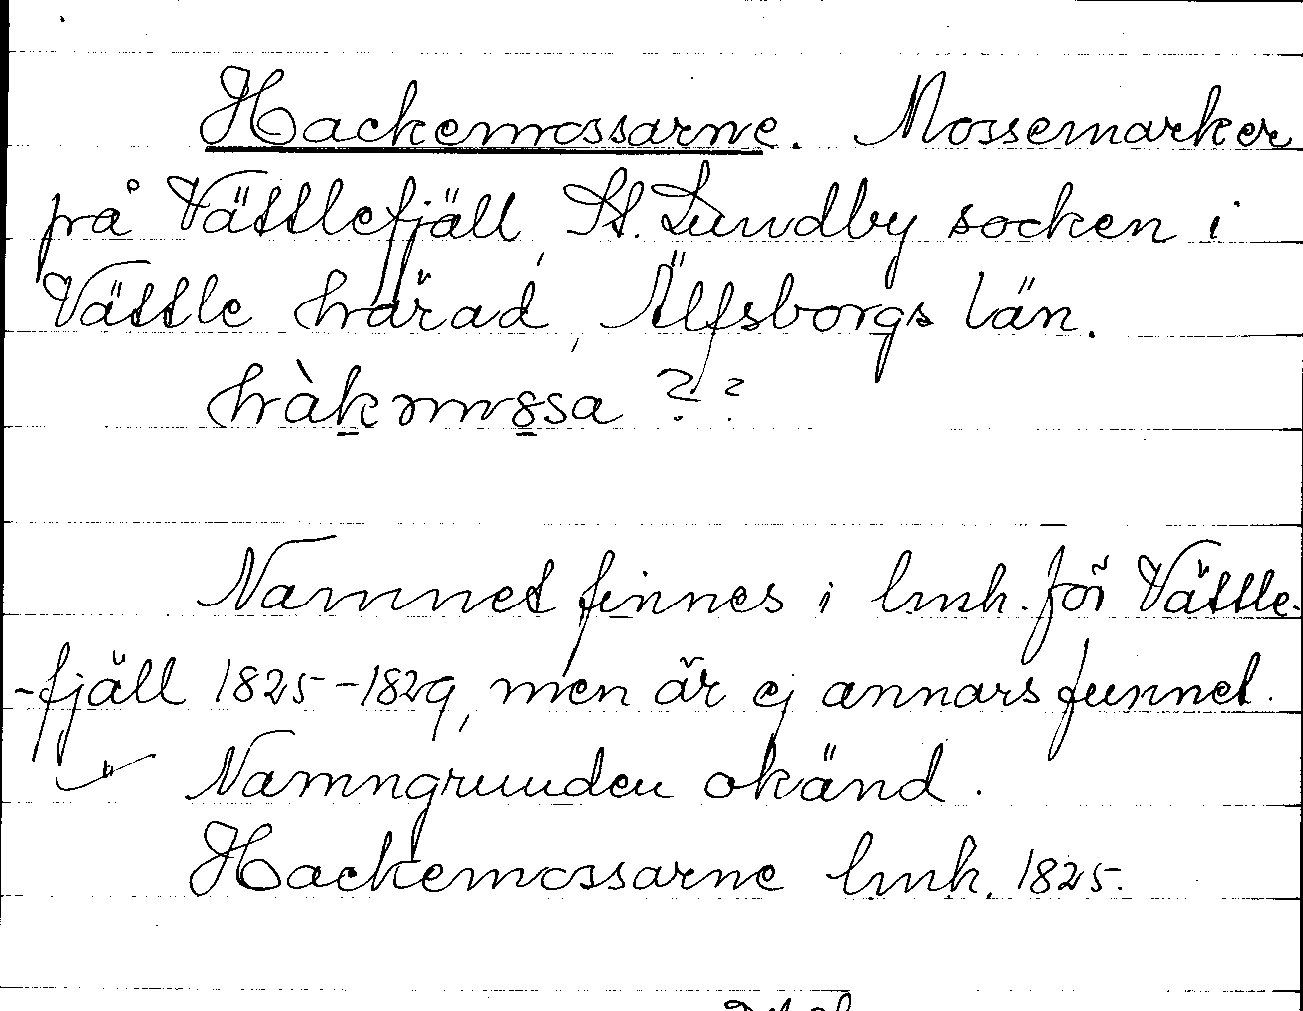 Hackemossarne. Mossemarker
på Vättlefjäll, St. Lundby socken i
Vättle härad, Älfsborgs län.
hàkmossa ??
Namnet finnes i lmk. för Vättle-
-fjäll 1825-1829, men är ej annars funnet.
Namngrunden okänd.
Hackemossarne lmk. 1825.